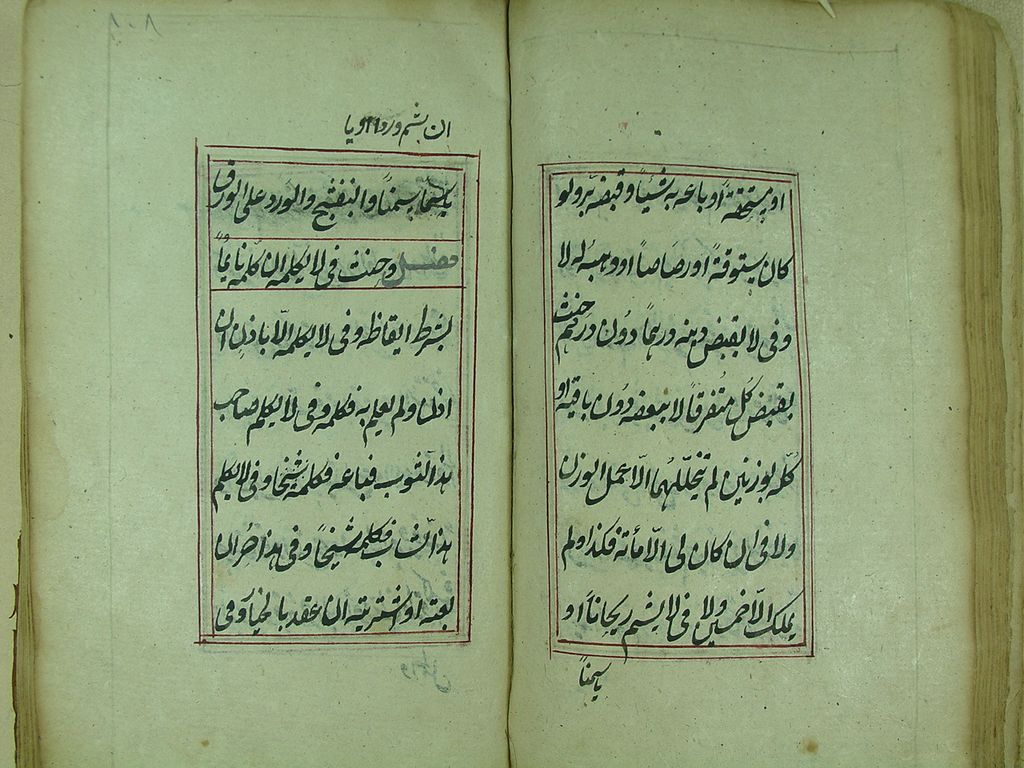 او مستحقة او باعه به شيئا وقبضه برّ ولو
كان ستوقة او رصاصا او وهبه له لا
وفى لا يقبض دينه درهما دون درهم حنث
بقبض كل متفرقا لا ببعضه دون باقيه او
كله بوزنين لم يتخللهما الا عمل الوزن
ولا فى ان كان لى الا مأته فكذا ولم
يملك الا خمسين ولا فى لا يشم ريحانا او
ياسمنا
ان بشم ورد او يا
ياسمينا والبنفسج والورد على الورق
فصل وحنث فى لا يكلمه ان كلمه نايما
بشرط ايقاظه وفى لا يكلمه الا باذنه ان
اذن ولم يعلم به فكلمه وفى لا يكلم صاحب
هذا الثوب فباعه فكلمه شيخا وفى لا يكلم
هذا الشاب فكلمه شيخا وفى هذا حر ان
بعته او اشتريته ان عقد بالخيار وفى